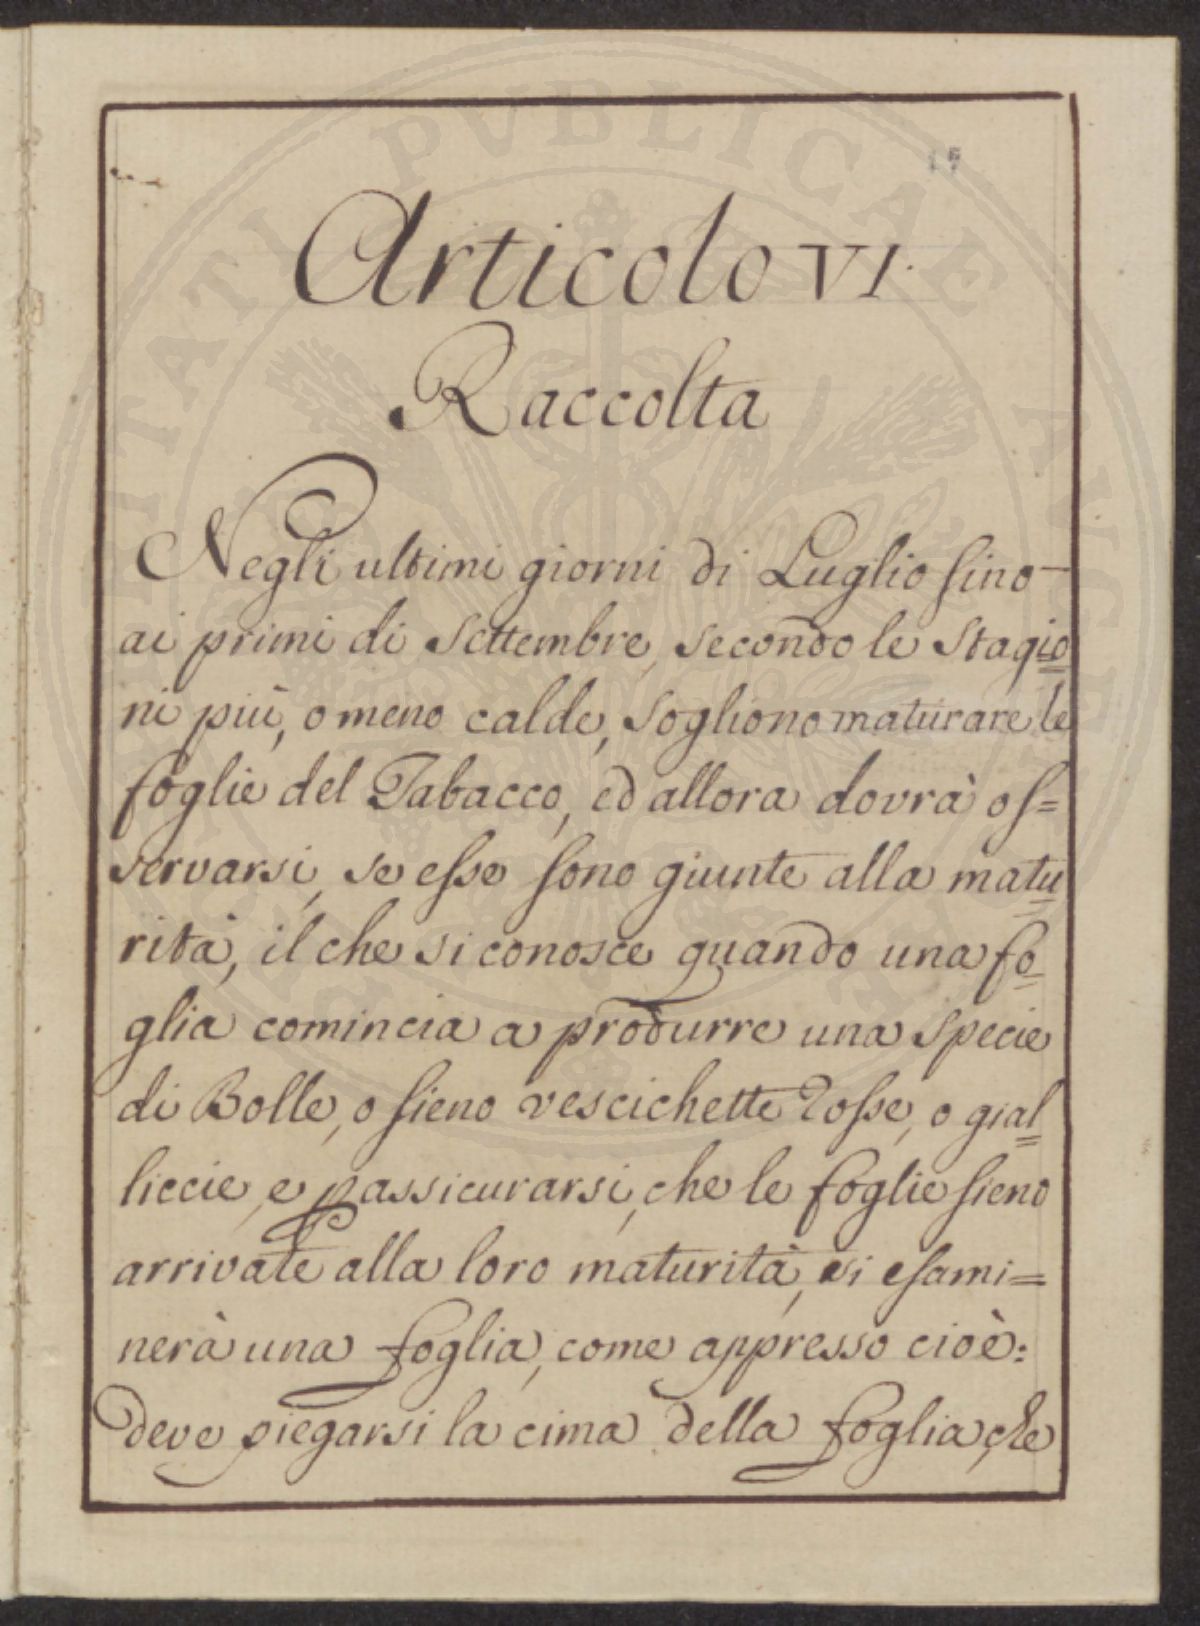 17
Articolo VI.
Raccolta
Negli ultimi giorni di Luglio sino
ai primi di Settembre, secondo le Stagio
ni più, o meno calde, sogliono maturare le
foglie del Tabacco, ed allora dovrà os=
servarsi, se esse sono giunte alla matu
rità, il che si conosce quando una fo
glia comincia a produrre una specie
di Bolle, o sieno vescichette rosse, o gial
liccie, e passicurarsi, che le foglie sieno
arrivate alla loro maturità, si esami=
nerà una foglia, come appresso cioè:
deve piegarsi la cima della foglia, che